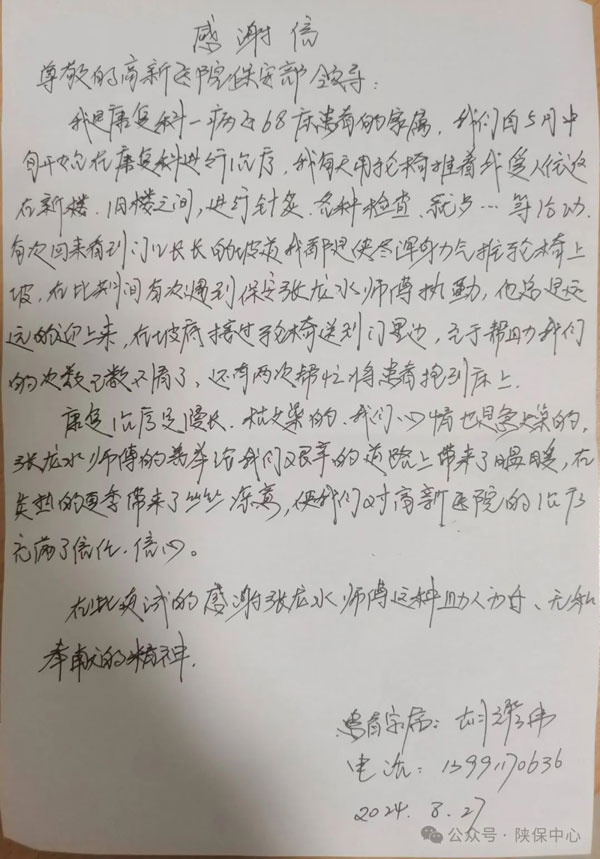 感谢信
尊敬的高新医院保安部领导:
我是康复科一病区68床患者的家属,我们自5月中
旬开始在康复科进行治疗,我每天用轮椅推着我爱人往返
在新楼、旧楼之间,进行针灸、各种检查、就占…等活动,
每次回来看到门口长长的坡道我都是使尽浑身力气推轮椅上
坡,在此期间有次遇到保安张龙水师傅执勤,他总是远
远的迎上来,在坡底接过轮椅送到门里边,至于帮助我们
的次数已数不清了、还有两次帮忙将患者抱到床上.
康复治疗是漫长、枯燥的、我们心情也是急燥的,
张龙水师傅的善举给我们艰辛的道路上带来了温暖,在
炎热的夏季带来了丝丝凉意,使我们对高新医院的治疗
充满了信任、信心。
在此真诚的感谢张龙水师傅这种助人为、无私
奉献的精神.
患者家属:
电话: 13991170636
2024. 8.27
公众号·陕保中心